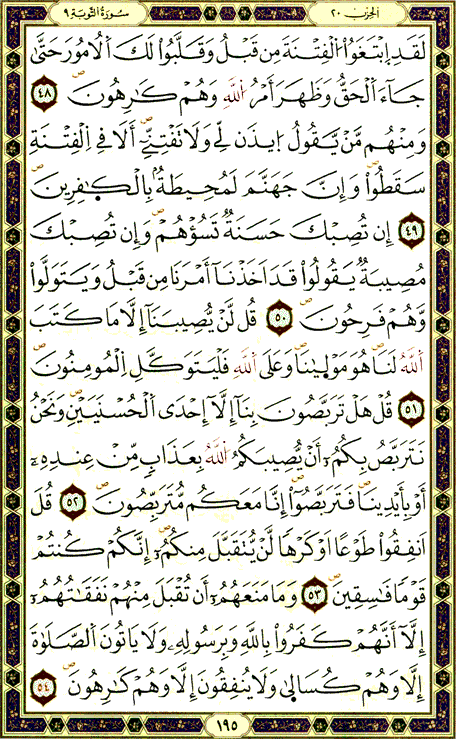 سُورَةُ التَّوْبَةِ ٩ الحِزْب ٢٠
لَقَدِ اِ۪بْتَغَوُا۟ الْفِتْنَةَ مِن قَبْلُ وَقَلَّبُوا۟ لَكَ اَ۬لُامُورَ حَتَّىٰ
جَآءَ اَ۬لْحَقُّ وَظَهَرَ أَمْرُ اُ۬للَّهِ وَهُمْ كَٰرِهُونَ ٤٨
وَمِنْهُم مَّنْ يَّقُولُ اُ۪يذَن لِّے وَلَا تَفْتِنِّےٓ أَلَا فِے اِ۬لْفِتْنَةِ
سَقَطُوا۟ وَإِنَّ جَهَنَّمَ لَمُحِيطَةُۢ بِالْكٰ۪فِرِينَ
٤٩ إِن تُصِبْكَ حَسَنَةٞ تَسُؤْهُمْ وَإِن تُصِبْكَ
مُصِيبَةٞ يَقُولُوا۟ قَدَ اَخَذْنَآ أَمْرَنَا مِن قَبْلُ وَيَتَوَلَّوا۟
وَّهُمْ فَرِحُونَ ٥٠ قُل لَّنْ يُّصِيبَنَآ إِلَّا مَا كَتَبَ
اَ۬للَّهُ لَنَا هُوَ مَوْل۪يٰنَا وَعَلَى اَ۬للَّهِ فَلْيَتَوَكَّلِ اِ۬لْمُومِنُونَ
٥١ قُلْ هَلْ تَرَبَّصُونَ بِنَآ إِلَّآ إِحْدَى اَ۬لْحُسْنَيَيْنِ وَنَحْنُ
نَتَرَبَّصُ بِكُمُۥٓ أَنْ يُّصِيبَكُمُ اُ۬للَّهُ بِعَذَابٖ مِّنْ عِندِهِۦٓ
أَوْ بِأَيْدِينَا فَتَرَبَّصُوٓا۟ إِنَّا مَعَكُم مُّتَرَبِّصُونَ ٥٢ قُلَ
اَنفِقُوا۟ طَوْعاً اَوْ كَرْهاٗ لَّنْ يُّتَقَبَّلَ مِنكُمُۥٓ إِنَّكُمْ كُنتُمْ
قَوْماٗ فَٰسِقِينَ ٥٣ وَمَا مَنَعَهُمُۥٓ أَن تُقْبَلَ مِنْهُمْ نَفَقَٰتُهُمُۥٓ
إِلَّآ أَنَّهُمْ كَفَرُوا۟ بِاللَّهِ وَبِرَسُولِهِۦ وَلَا يَاتُونَ اَ۬لصَّلَوٰةَ
إِلَّا وَهُمْ كُسَال۪ىٰ وَلَا يُنفِقُونَ إِلَّا وَهُمْ كَٰرِهُونَ ٥٤
١٩٥